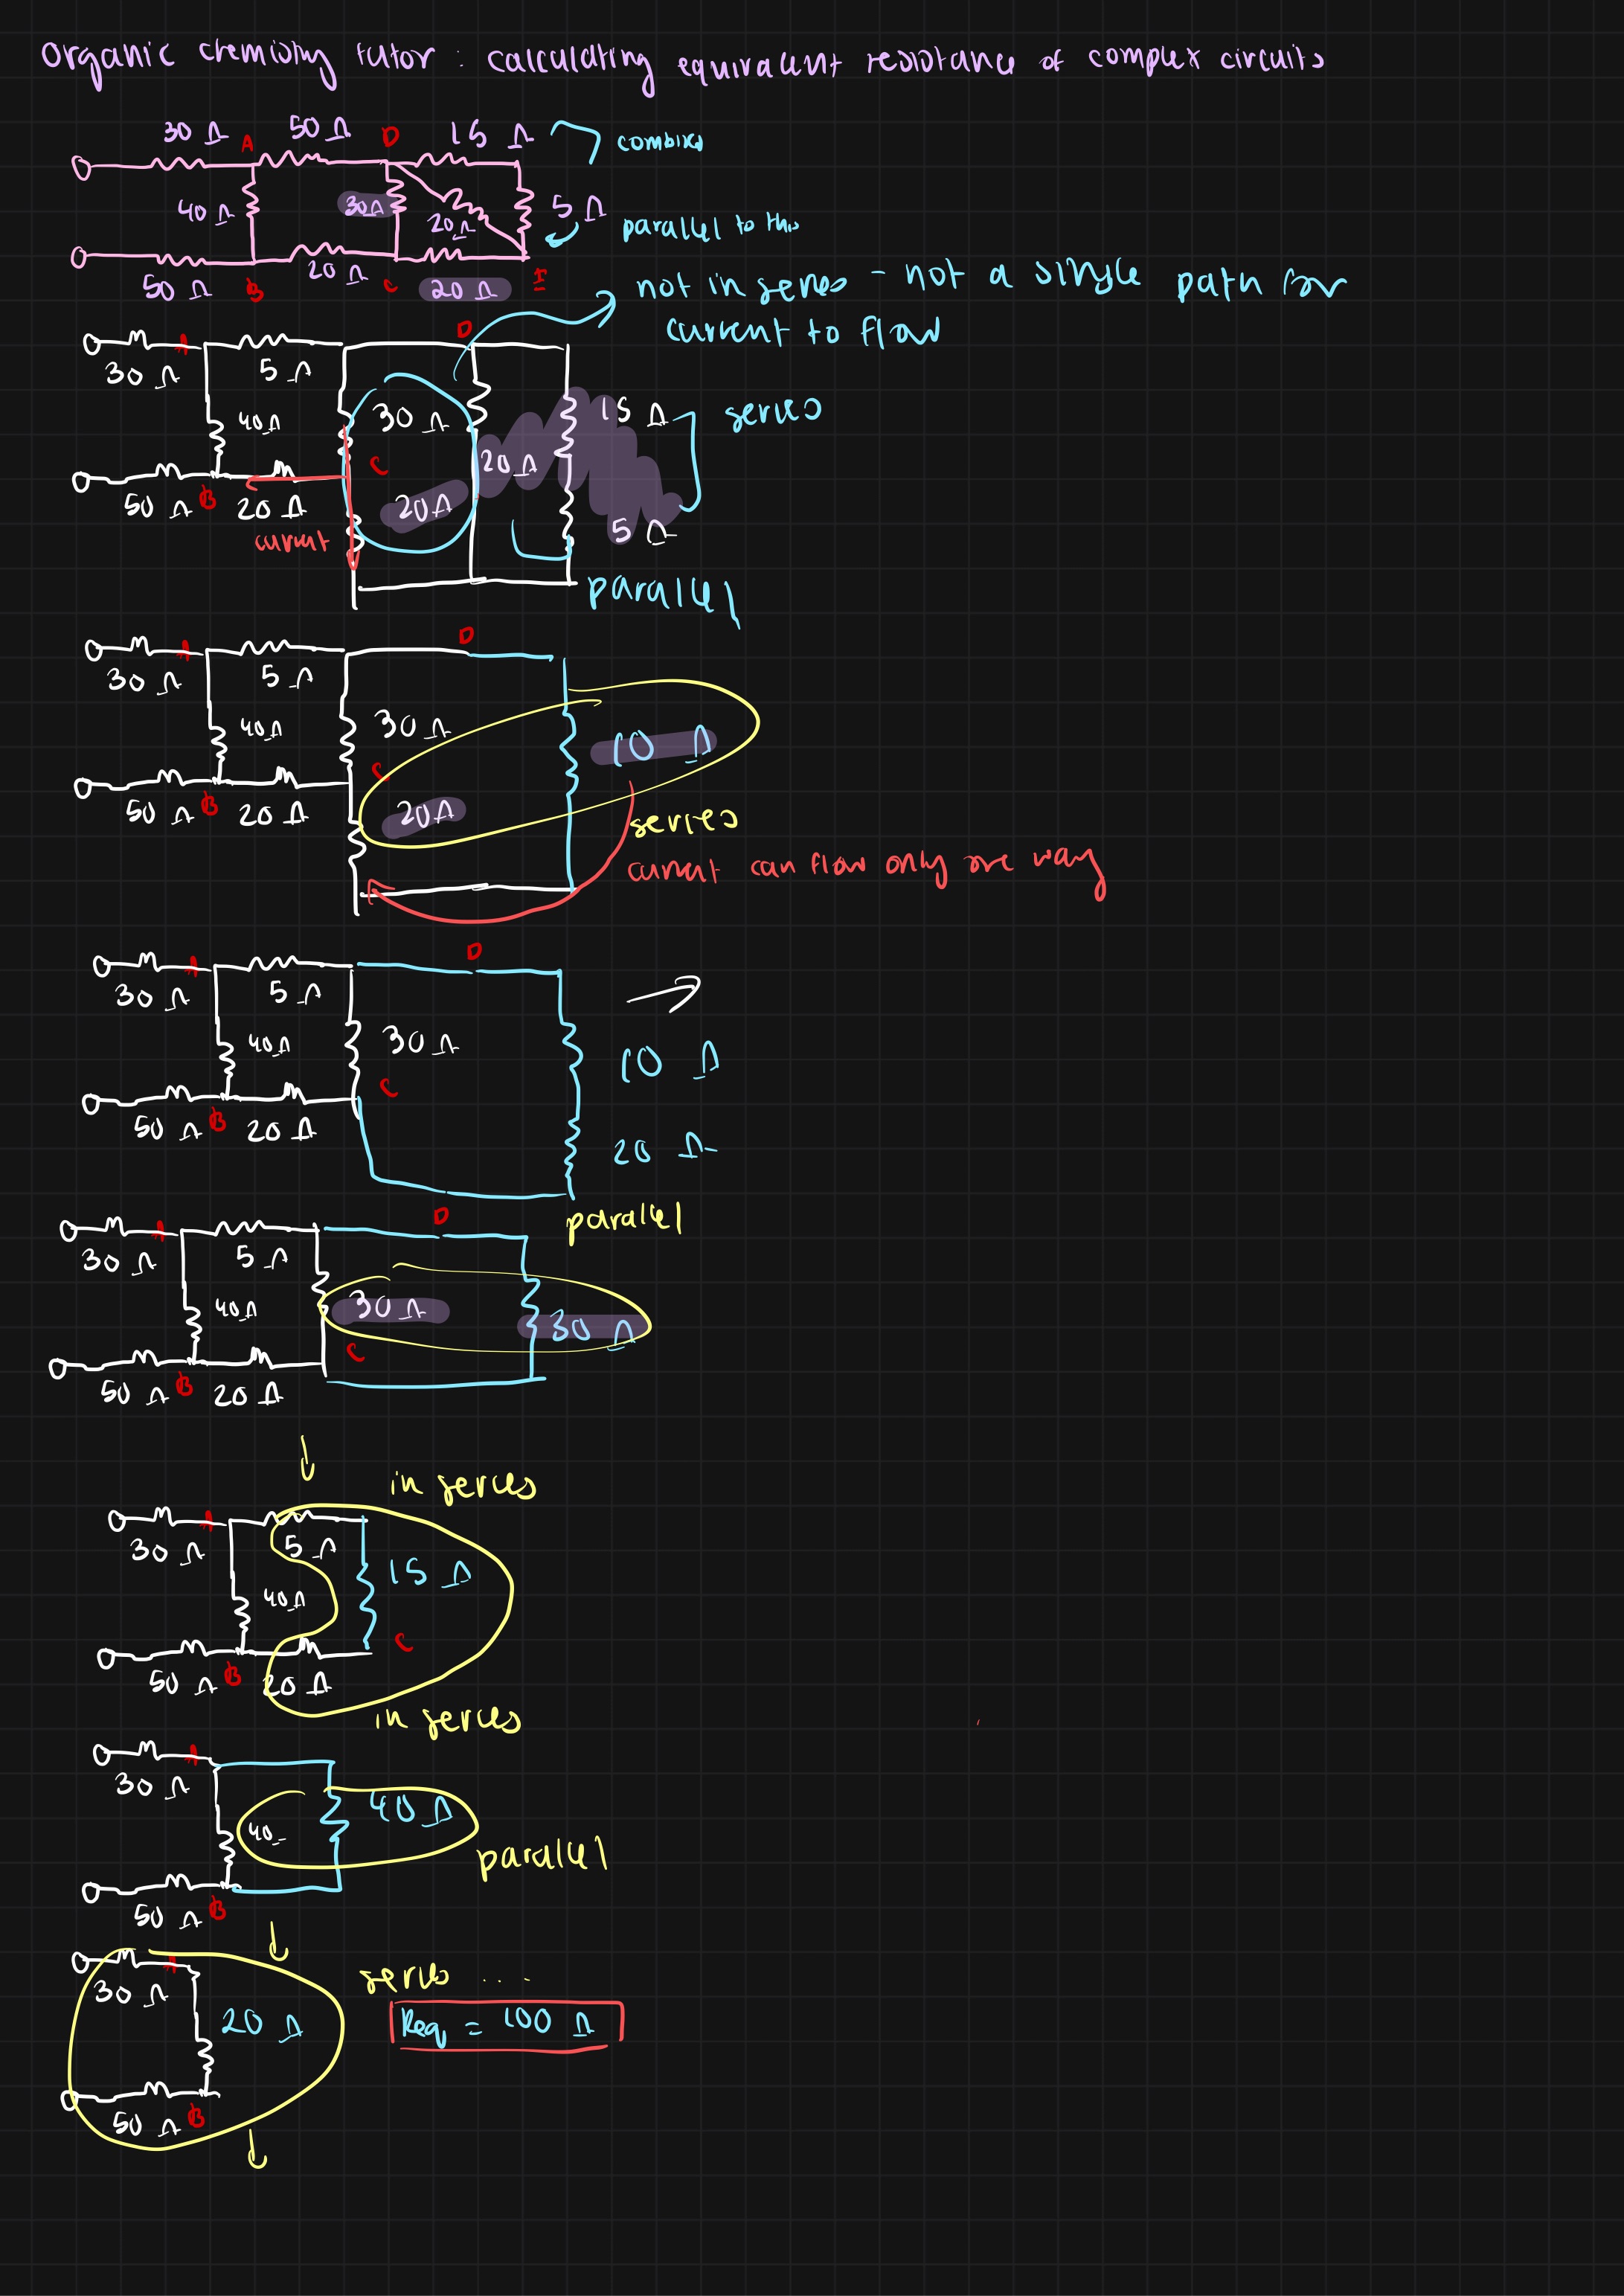 organic chemistry tutor : calculating equivalent resistance of complex circuits
30 Ω A 50 Ω D 15 Ω combined
40 Ω 30Ω 20Ω 5 Ω parallel to this
50 Ω B 20 Ω C 20 Ω E
not in series - not a single path for
current to flow
A D
30 Ω 5 Ω
40Ω 30 Ω 15 Ω series
C 20Ω
50 Ω B 20 Ω 20Ω 5 Ω
current
parallel
A D
30 Ω 5 Ω
40Ω 30 Ω 10 Ω
C
50 Ω B 20 Ω 20Ω series
current can flow only one way
A D
30 Ω 5 Ω
40Ω 30 Ω 10 Ω
C
50 Ω B 20 Ω 20 Ω
parallel
A D
30 Ω 5 Ω
40Ω 30Ω 30 Ω
C
50 Ω B 20 Ω
in series
A
30 Ω 5 Ω 15 Ω
40Ω
C
50 Ω B 20 Ω
in series
A
30 Ω 40 Ω
40
parallel
50 Ω B
A
30 Ω series ....
20 Ω Req = 100 Ω
50 Ω B